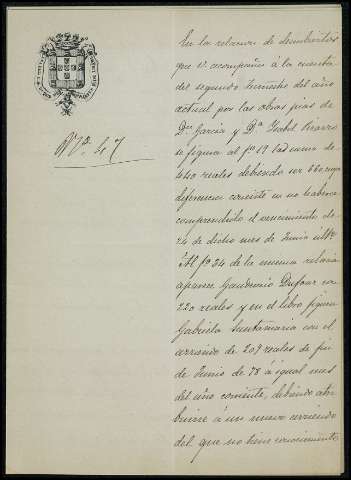 Nº. 47
En la relacion de descubiertos
que se acompaña á la cuenta
del segundo trimestre del año
actual por las obras pias de
Dn. Garcia y Dª Isabel Pizarro
se figura al fº 19 la suma de
440 reales debiendo ser 660 cuya
diferencia consiste en no haberse
comprendido el vencimiento de
24 de dicho mes de Junio últº
Al fº 34 de la misma relacion
aparece Gaudencio Dufour con
220 reales y en el libro figura
Gabriela Santamaria con el
arriendo de 207 reales de fin
de Junio de 78 á igual mes
del año corriente, debiendo atri
buirse á un nuevo arriendo
del que no tiene conocimiento